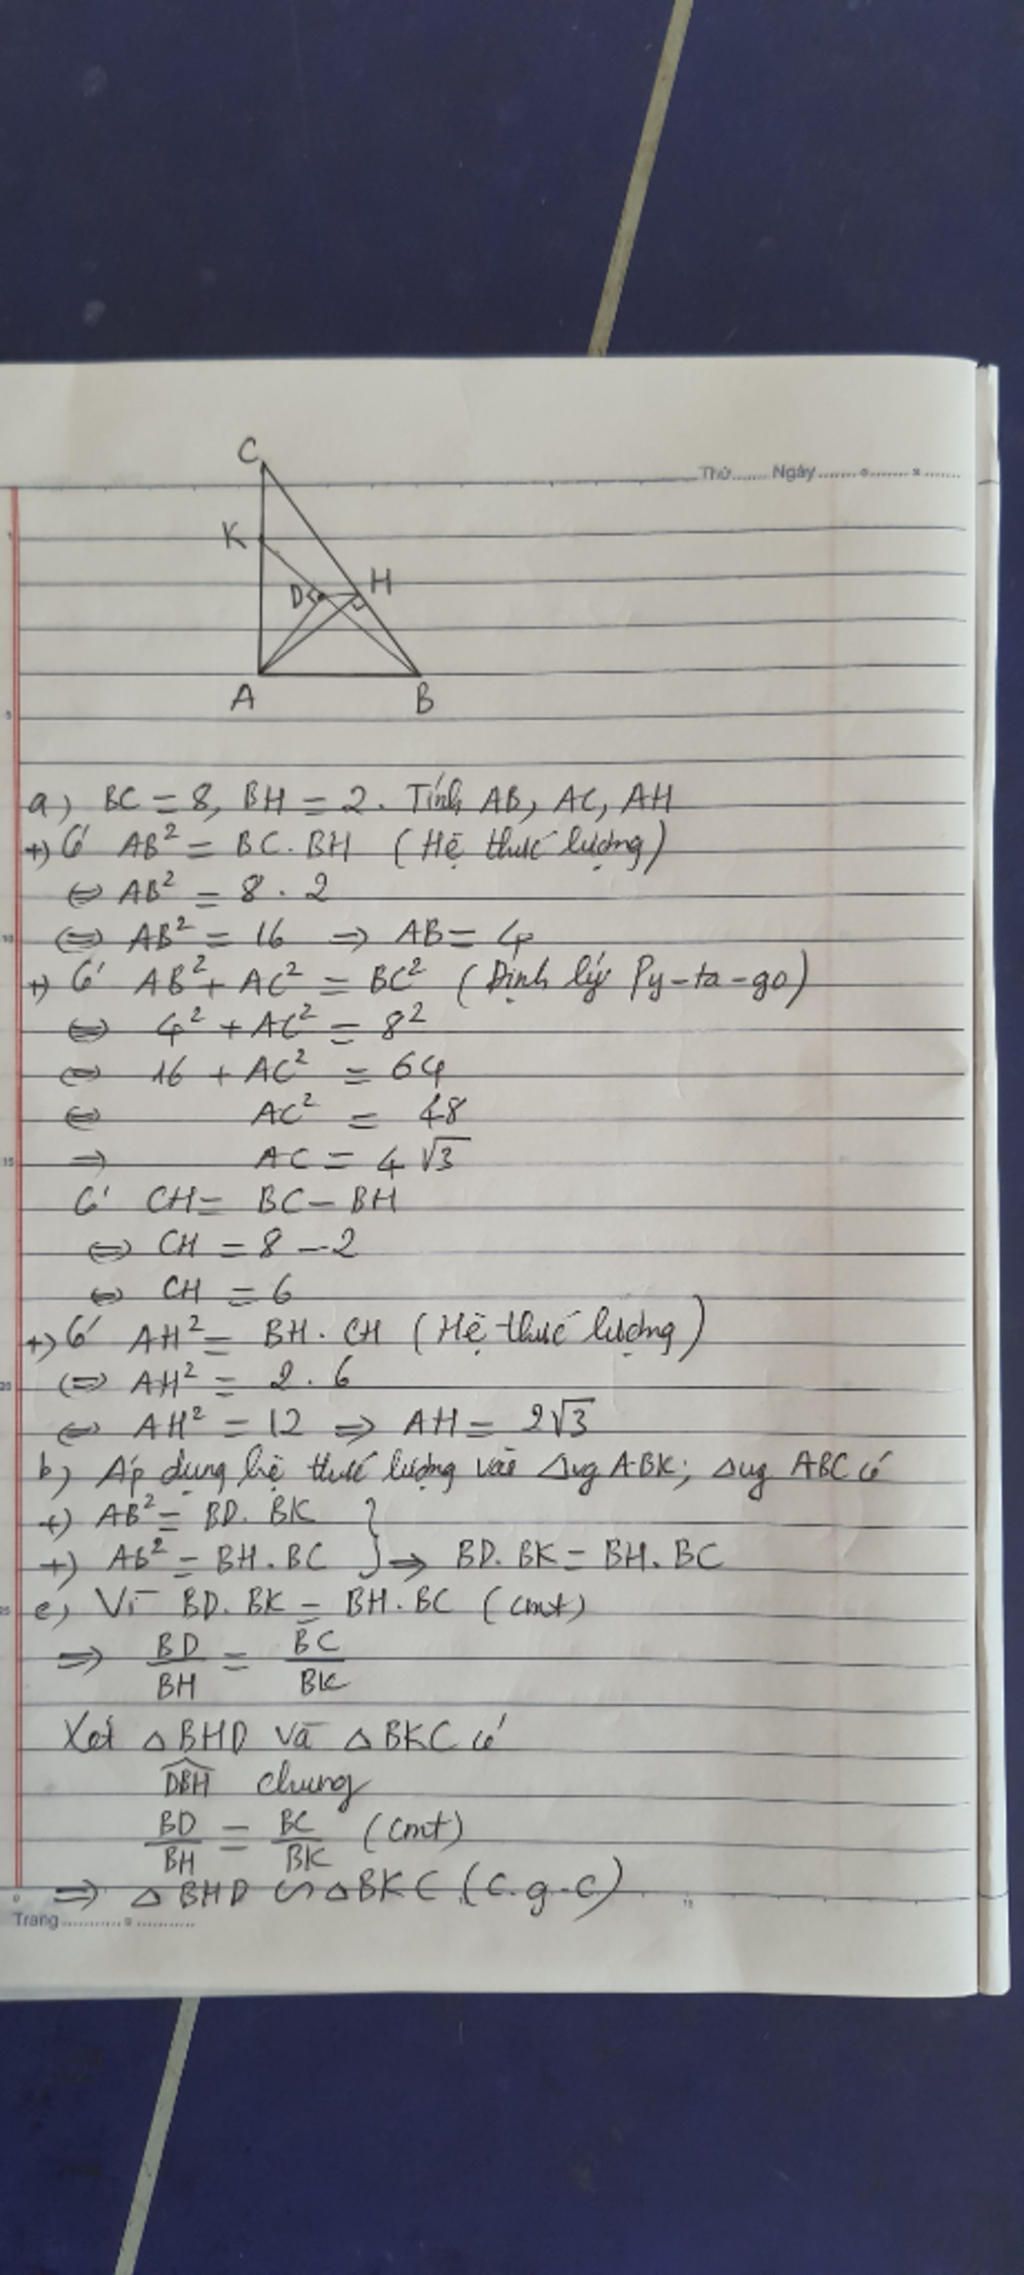 C
Thứ....... Ngày........o........x.......
K
D
H
A
B
a) BC = 8, BH = 2. Tính AB, AC, AH
+) Có AB² = BC . BH (Hệ thức lượng)
⇔ AB² = 8 . 2
⇔ AB² = 16 ⇒ AB = 4
+) Có AB² + AC² = BC² (Định lý Py-ta-go)
⇔ 4² + AC² = 8²
⇔ 16 + AC² = 64
⇔ AC² = 48
⇒ AC = 4√3
Có CH = BC - BH
⇔ CH = 8 - 2
⇔ CH = 6
+) Có AH² = BH . CH (Hệ thức lượng)
⇔ AH² = 2 . 6
⇔ AH² = 12 ⇒ AH = 2√3
b) Áp dụng hệ thức lượng vào Δvg ABK; Δvg ABC có
+) AB² = BD . BK
+) AB² = BH . BC } ⇒ BD . BK = BH . BC
c) Vì BD . BK = BH . BC (cmt)
⇒ BD/BH = BC/BK
Xét ΔBHD và ΔBKC có
DBH chung
BD/BH = BC/BK (cmt)
⇒ ΔBHD ∽ ΔBKC (c.g.c)
Trang
5
10
15
20
25